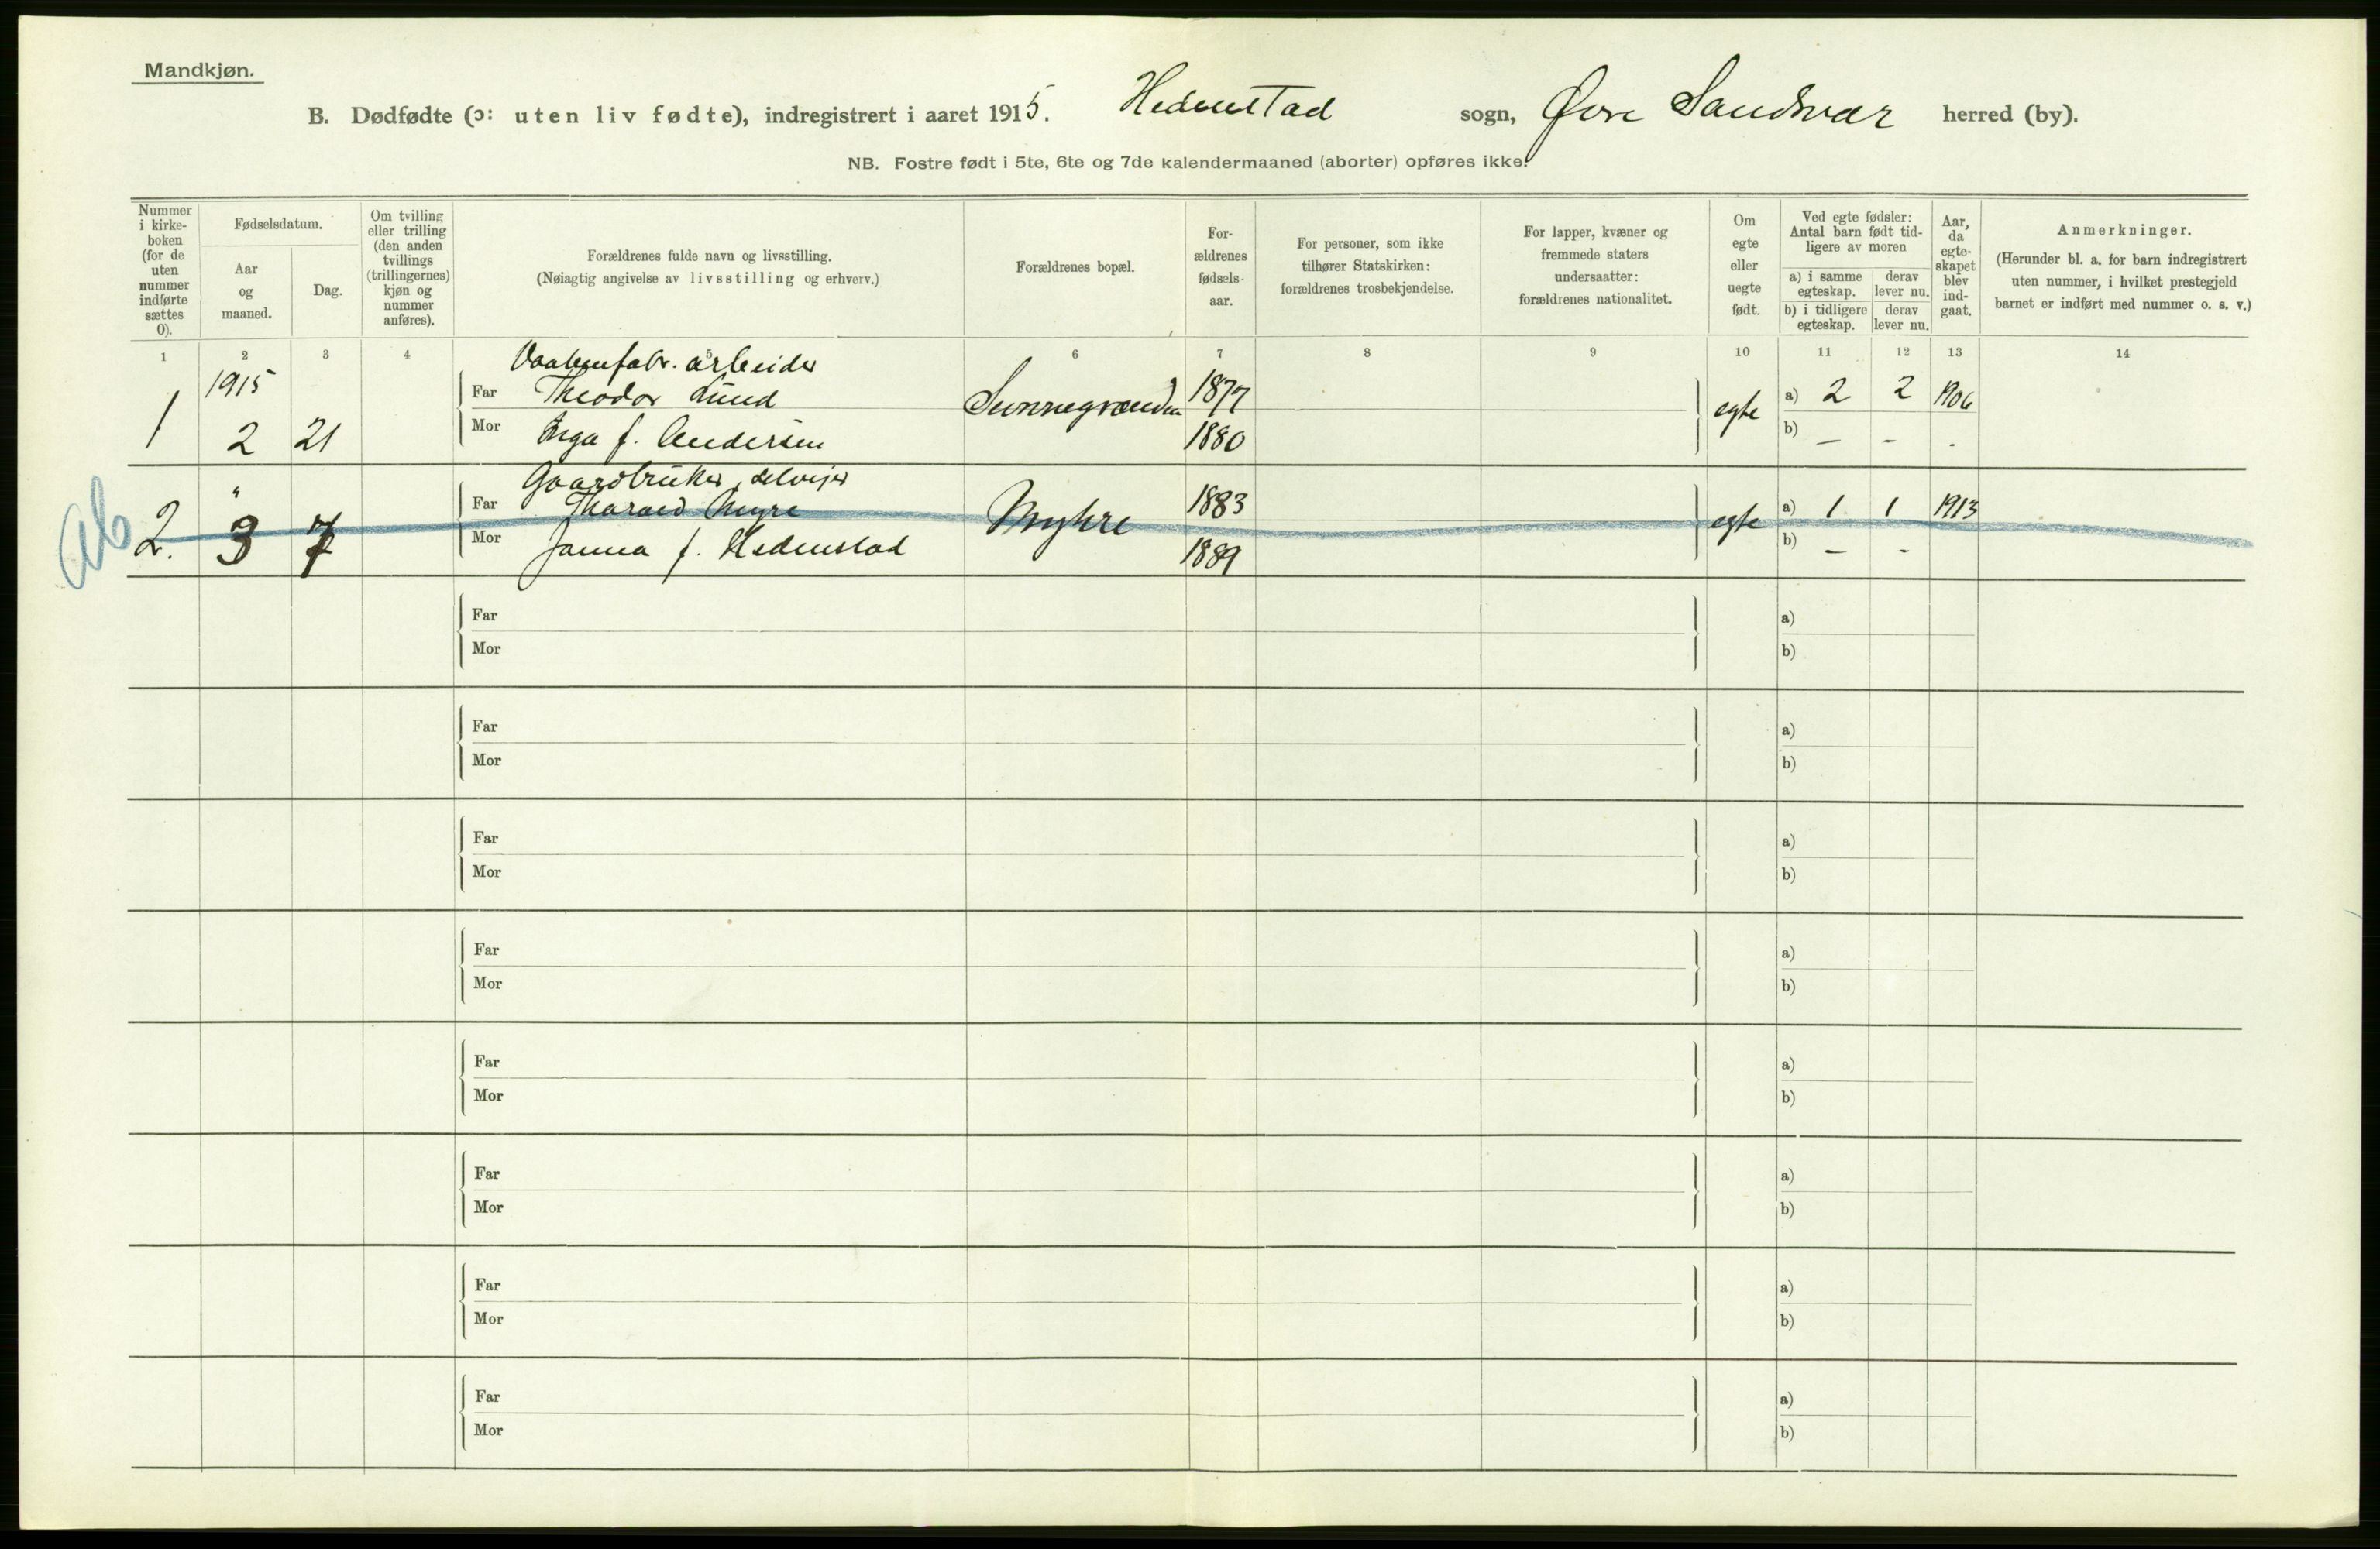 Mandkjøn.
B. Dødfødte (ɔ: uten liv fødte), indregistrert i aaret 1915. Hedenstad sogn, Øvre Sandsvær herred (by).
NB. Fostre født i 5te, 6te og 7de kalendermaaned (aborter) opføres ikke.
Nummer i kirke-boken (for de uten nummer indførte sættes 0).
Fødselsdatum.
Aar og maaned.
Dag.
Om tvilling eller trilling (den anden tvillings (trillingernes) kjøn og nummer anføres).
Forældrenes fulde navn og livsstilling.
(Nøiagtig angivelse av livsstilling og erhverv.)
Forældrenes bopæl.
For-ældrenes fødsels-aar.
For personer, som ikke tilhører Statskirken: forældrenes trosbekjendelse.
For lapper, kvæner og fremmede staters undersaatter: forældrenes nationalitet.
Om egte eller uegte født.
Ved egte fødsler: Antal barn født tid-ligere av moren
a) i samme egteskap.
derav lever nu.
b) i tidligere egteskap.
derav lever nu.
Aar, da egte-skapet blev ind-gaat.
Anmerkninger.
(Herunder bl. a. for barn indregistrert uten nummer, i hvilket prestegjeld barnet er indført med nummer o. s. v.)
1 2 3 4 5 6 7 8 9 10 11 12 13 14
Vaabenfabr. arbeider
1915 Far Theodor Lund 1877 a) 2 2 1906
1 2 21 Mor Inga f. Andersen 1880 egte b) — - .
Gaardbruker, selveier
" Far Myre Myhre 1883 a) 1 1 1913
ab 2. 3 7 Mor Janna f. Hedenstad 1889 egte b) — -
Far a)
Mor b)
Far a)
Mor b)
Far a)
Mor b)
Far a)
Mor b)
Far a)
Mor b)
Far a)
Mor b)
Far a)
Mor b)
Far a)
Mor b)